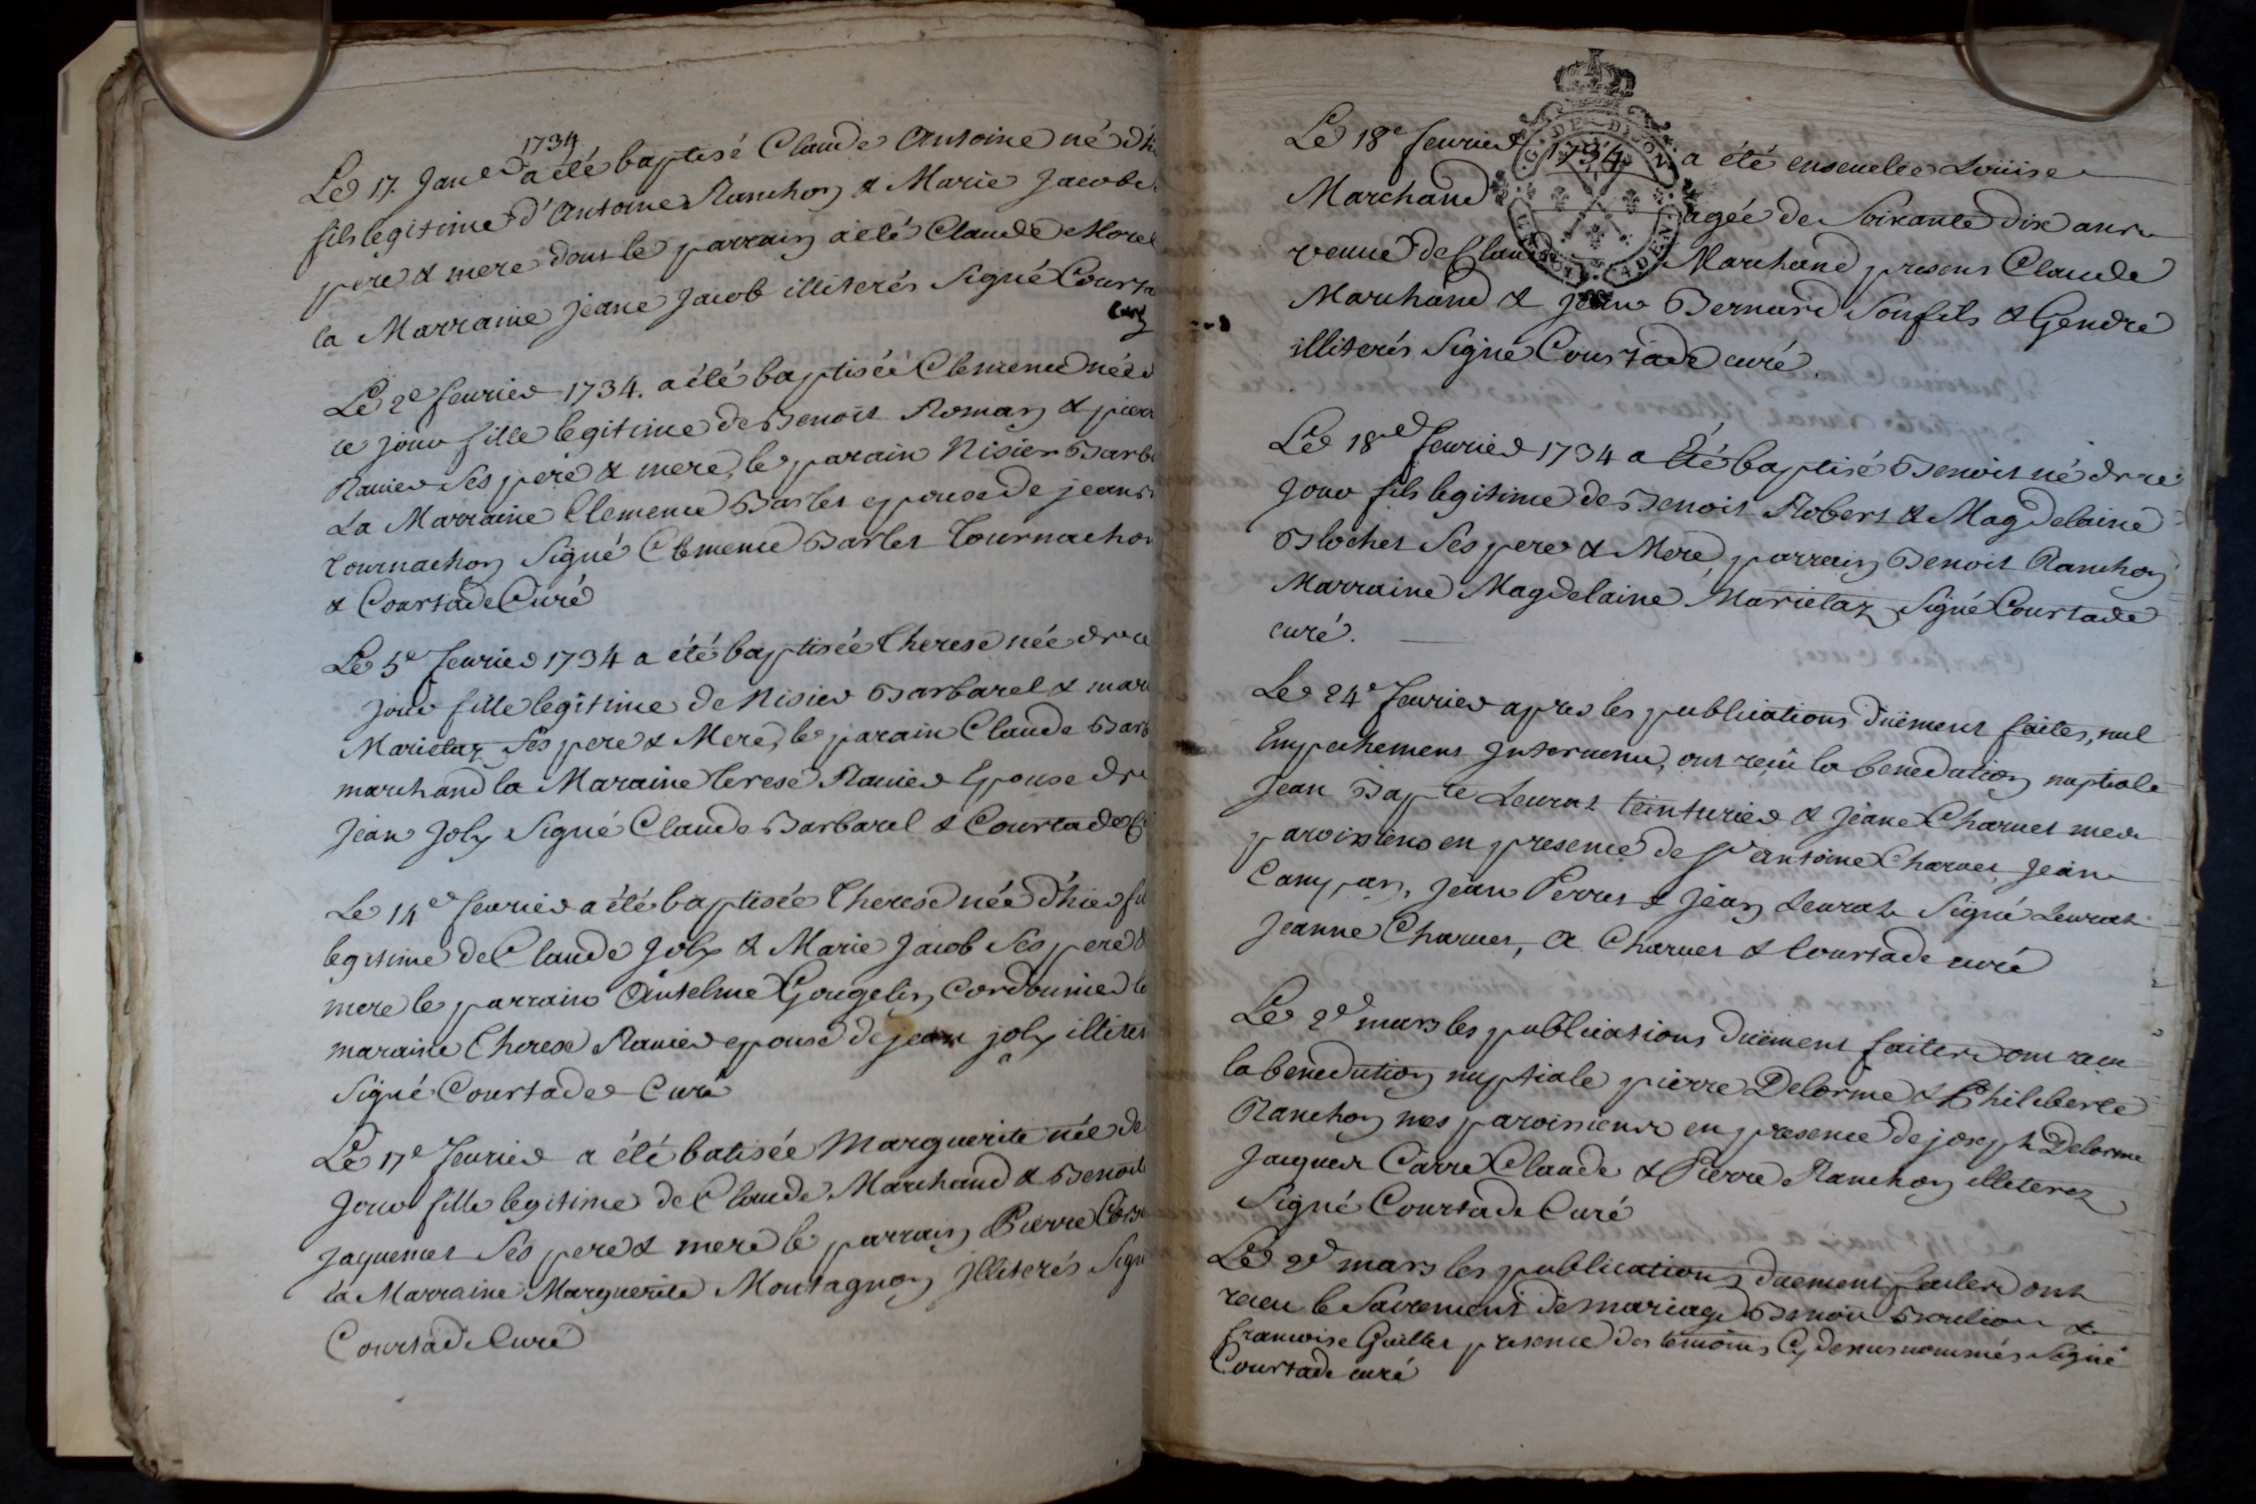 Le 17. Janer 1734 a été baptisé Claude Antoine né d'h
fils legitime d'Antoine Ranchon & Marie Jacob
pere & mere dont le parrain a été Claude Morel
la Marraine Jeane Jacob illiterés Signé Courta
Curé
Le 2e feurier 1734. a été baptiséé Clemence néé
ce jour fille legitime de Benoit Roman & pier
Ranier Ses pere & mere, le parain Nisier Barb
La Marraine Clemence Barlet epouse de jean
Tournachon Signé Clemence Barlet Tournachon
& Courtade Curé
Le 5e feurier 1734 a été baptiséé Therese néé de ce
jour fille legitime de Nisier Barbarel & mari
Marielaz Ses pere & Mere, le parain Claude Barb
marchand la Maraine Terese Ranier Epouse de
Jean Joly Signé Claude Barbarel & Courtade C
Le 14e feurier a été baptisée Therese néé d'hier fil
legitime de Claude Joly & Marie Jacob Ses pere &
mere le parrain Antelme Gougelin Cordonnier la
maraine Therese Ranier epouse de jean joly illiter
Signé Courtade Curé
Le 17e feurier a été batisée Marguerite née de
Jour fille legitime de Claude Marchand & Benoite
Jaquemet Ses pere & mere le parrain Pierre
la Marraine Marguerite Montagnon Jlliterés Sign
Courtade Curé
Le 18e feurier 1734 a été enseuelie Loüise
Marchand agée de Soixante dix ans
veuue de Claude Marchand presens Claude
Marchand & jean Bernard Son fils & Gendre
illiterés Signé Courtade curé.
G. DE DIJON
Le 18e feurier 1734 a Eté baptisé Benoit né de ce
Jour fils legitime de Benoit Robert & Magdelaine
Blochet Ses pere & Mere, parrain Benoit Ranchon
Marraine Magdelaine Marielaz Signé Courtade
curé.
Le 24e feurier apres les publications düement faites, nul
Empechement Interuenu, ont reçu la benediction nuptiale
Jean Bapte Leurat teinturier & Jeane Charuet mes
paroissiens en presence de Sr antoine Charuet Jean
Campan, Jean Perret & Jean Leurat Signé Leurat
Jeanne Charuet, A Charuet & Courtade curé
Le 2e mars les publications düement faites ont receu
la benediction nuptiale pierre Delorme & Philiberte
Ranchon mes paroissiens en presence de joseph Delorme
Jacques Carre Claude & Pierre Ranchon illeterez
Signé Courtade Curé
Le 2e mars les publications duement faites ont
receu le Sacrement de mariage Benoit &
francoise Guillet presence des temoins Cy dessus nommés Signé
Courtade curé